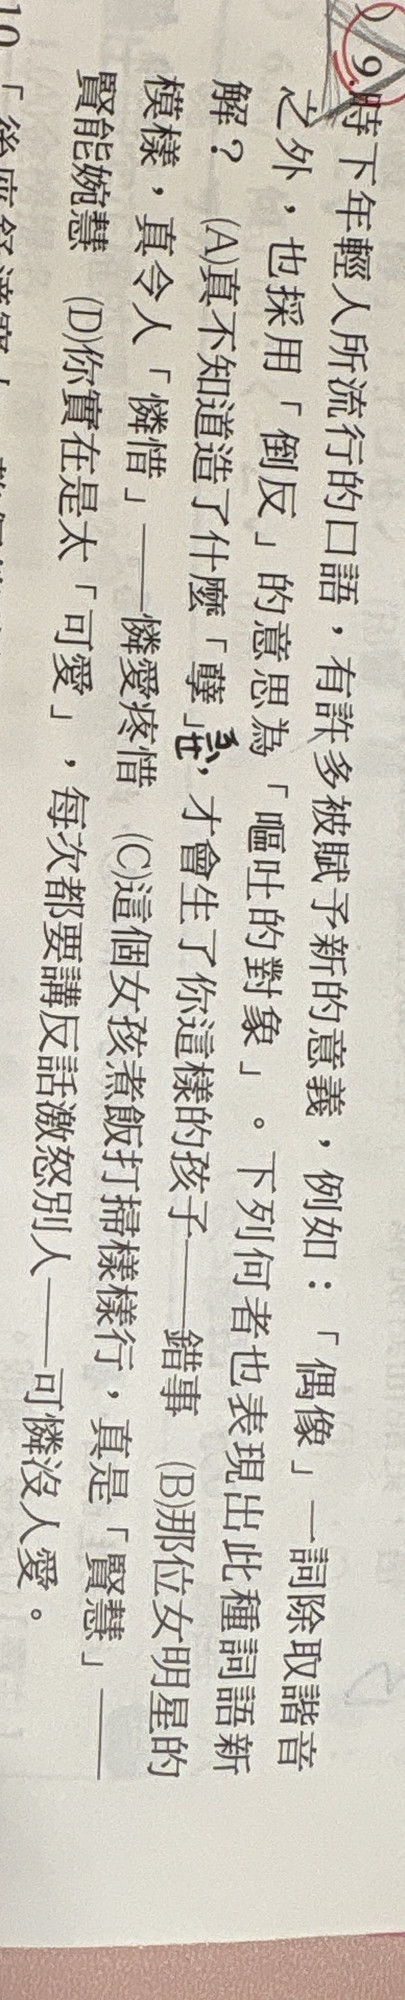 9.時下年輕人所流行的口語，有許多被賦予新的意義，例如：「偶像」一詞除取諧音
之外，也採用「倒反」的意思為「嘔吐的對象」。下列何者也表現出此種詞語新
解？ (A)真不知道造了什麼「孽」，才會生了你這樣的孩子——錯事 (B)那位女明星的
模樣，真令人「憐惜」——憐愛疼惜 (C)這個女孩煮飯打掃樣樣行，真是「賢慧」——
賢能婉慧 (D)你實在是太「可愛」，每次都要講反話激怒別人——可憐沒人愛。
10